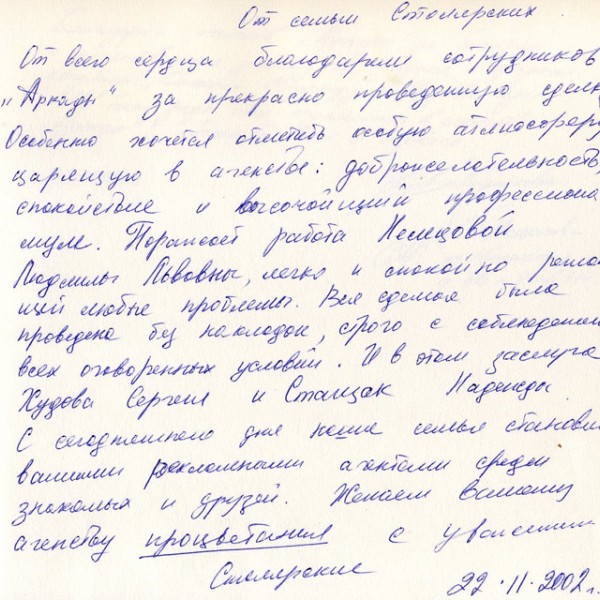 От семьи Столярских
От всего сердца благодарим сотрудников
„Аркады" за прекрасно проведенную сделк
Особенно хочется отметить особую атмосферу
царящую в агенстве: доброжелательность,
спокойствие и высочайщий профессиона
мулм. Поражает работа Немцовой
Людмилы Львовны, легко и спокойно решаю
щий любые проблемы. Вся сделка была
проведена без накладок, строго с соблюдением
всех оговоренных условий. И в этом заслуга
Худова Сергея и Станщак Надежды
С сегодняшнего дня наша семья станови
вашими рекламными агентами среди
знакомых и друзей. Желаем Вашему
агенству процветания с уважением
Столярские
22.11.2002г.